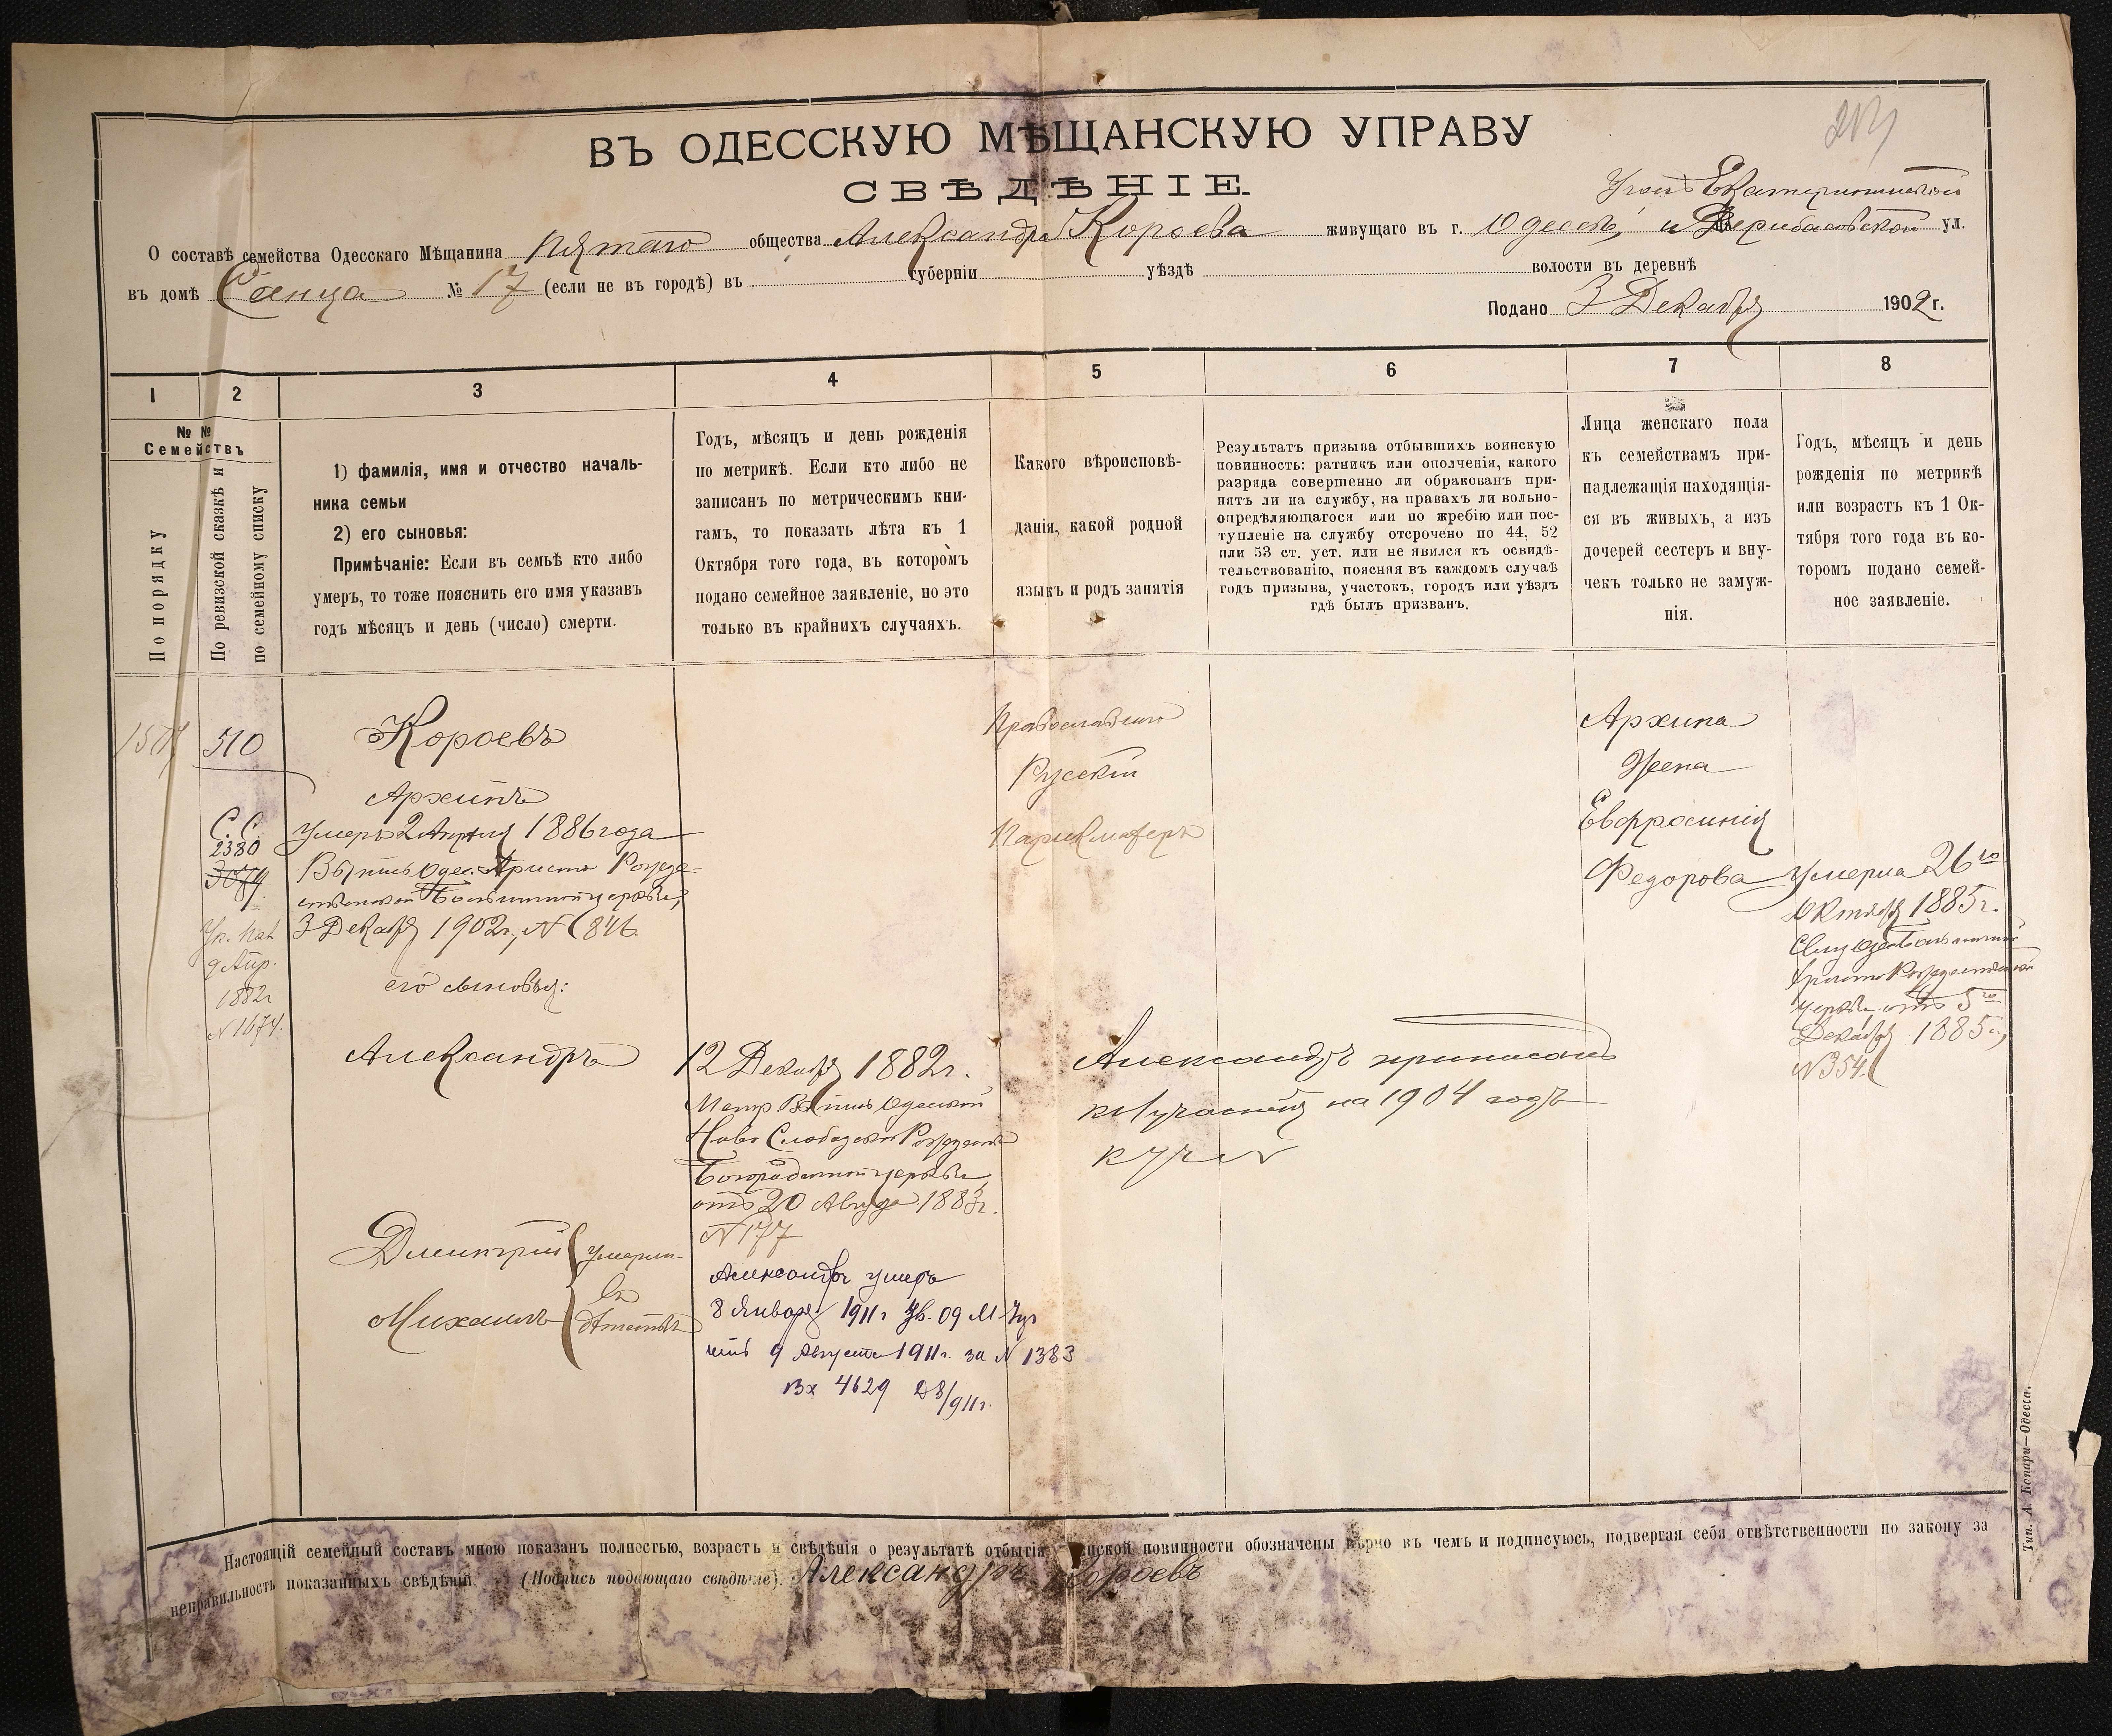 ВЪ ОДЕССКУЮ МѢЩАНСКУЮ УПРАВУ
СВѢДѢНІЕ.
Уголъ Екатерининской
О составѣ семейства Одесскаго Мѣщанина Пятаго общества Александра Короева живущаго въ г. Одессѣ, и Дерибасовской ул.
въ домѣ № 17 (если не въ городѣ) въ губерніи уѣздѣ волости въ деревнѣ
Подано 3 Декабря 1902 г.
1 2 3 4 5 6 7 8
№ №
Семействъ
По порядку
По ревизской сказкѣ и
по семейному списку
1) фамилія, имя и отчество началь-
ника семьи
2) его сыновья:
Примѣчаніе: Если въ семьѣ кто либо
умеръ, то тоже пояснить его имя указавъ
годъ мѣсяцъ и день (число) смерти.
Годъ, мѣсяцъ и день рожденія
по метрикѣ. Если кто либо не
записанъ по метрическимъ кни-
гамъ, то показать лѣта къ 1
Октября того года, въ которомъ
подано семейное заявленіе, но это
только въ крайнихъ случаяхъ.
Какого вѣроисповѣ-
данія, какой родной
языкъ и родъ занятія
Результатъ призыва отбывшихъ воинскую
повинность: ратникъ или ополченія, какого
разряда совершенно ли обракованъ при-
нятъ ли на службу, на правахъ ли вольно-
опредѣляющагося или по жребію или пос-
тупленіе на службу отсрочено по 44, 52
или 53 ст. уст. или не явился къ освидѣ-
тельствованію, поясняя въ каждомъ случаѣ
годъ призыва, участокъ, городъ или уѣздъ
гдѣ былъ призванъ.
Лица женскаго пола
къ семействамъ при-
надлежащія находящія-
ся въ живыхъ, а изъ
дочерей сестеръ и вну-
чекъ только не замуж-
нія.
Годъ, мѣсяцъ и день
рожденія по метрикѣ
или возрастъ къ 1 Ок-
тября того года въ ко-
торомъ подано семей-
ное заявленіе.
510
С. С.
2380
9 Апр.
1882 г
N 1674.
Короевъ
Архипъ
Умеръ 2 Апреля 1886 года
Вып Одес. Христо Рожде-
ственской церкви,
3 Декабря 1902 г., N 846.
его сыновья:
Александръ
Дмитрій умерли
Михаилъ въ дѣтствѣ
12 Декабря 1882 г.
Метр Вып Одесской
Ново Слободской Рождество
Богородичной церкви
отъ 20 Августа 1883 г.
N 177
Александръ умеръ
8 Января 1911 г
9 Августа 1911 г. за N 1383
Вх 4629
Православнаго
Русскій
Парикмахеръ
Александръ приписанъ
къ I участку на 1904 годъ
Архипа
Жена
Евфросинія
Федорова
Умерла 26го
Октября 1885 г.
Христо Рождественской
церкви отъ 5го
Декабря 1885 г.,
N 354.
Настоящій семейный составъ мною показанъ полностью, возрастъ и свѣдѣнія о результатѣ отбытія нской повинности обозначены вѣрно въ чемъ и подписуюсь, подвергая себя отвѣтственности по закону за
неправильность показанныхъ свѣдѣній. (Подпись подающаго свѣдѣніе). Александръ Короевъ
Тип. А. Копари—Одесса.